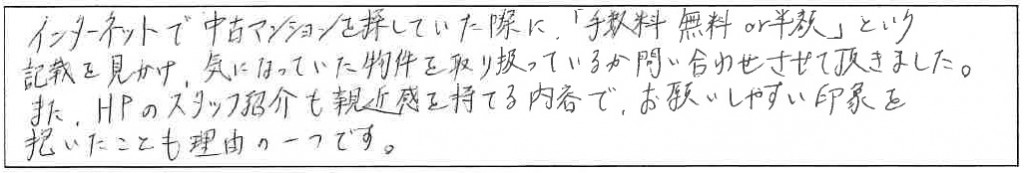 インターネットで中古マンションを探していた際に、「手数料無料or半額」という
記載を見かけ、気になっていた物件を取り扱っているか問い合わせさせて頂きました。
また、HPのスタッフ紹介も親近感を持てる内容で、お願いしやすい印象を
抱いたことも理由の一つです。